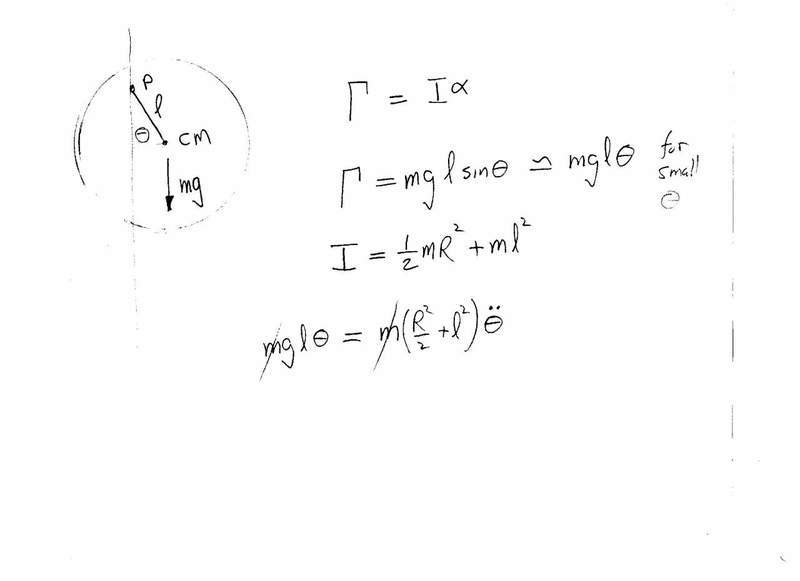 P
l
θ
CM
mg
Γ = Iα
Γ = mg l sinθ ≃ mglθ for small θ
I = 1/2 mR² + ml²
mglθ = m(R²/2 + l²)θ̈